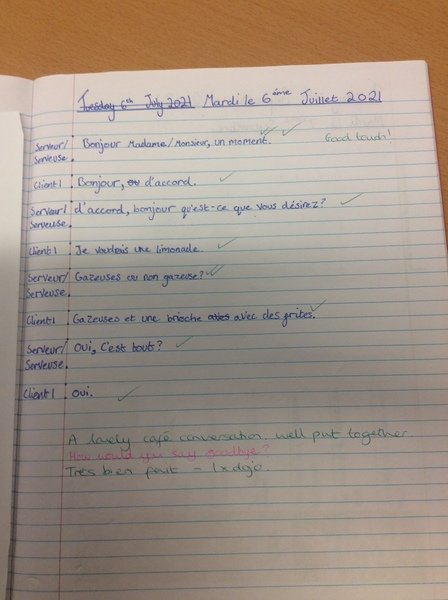 Tuesday 6th July 2021 Mardi le 6ème Juillet 2021
Serveur/ Bonjour Madame/Monsieur, un moment. Good touch!
Serveuse
Client 1 Bonjour, ou d'accord.
Serveur/ d'accord, bonjour qu'est-ce que vous désirez?
Serveuse.
Client 1 Je voudrais une limonade.
Serveur/ Gazeuses ou non gazeuse?
Serveuse.
Client 1 Gazeuses et une brioche avec des frites.
Serveur/ Oui, C'est tout?
Serveuse.
Client 1 Oui.
A lovely café conversation, well put together.
How would you say goodbye?
Très bien - 1x dojo.